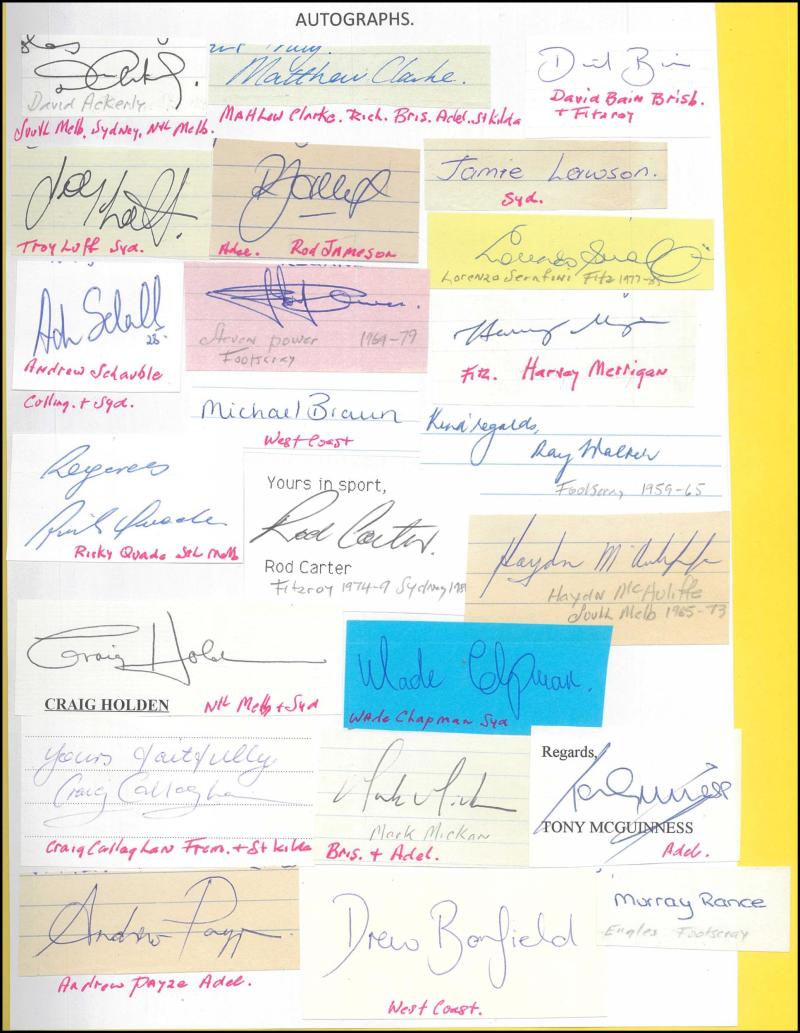 AUTOGRAPHS.
David Ackerly
South Melb, Sydney, Nth Melb.
Matthew Clarke.
Matthew Clarke. Rich. Bris. Adel. St Kilda
David Bain Brisb.
+ Fitzroy
Troy Luff Syd.
Adel. Rod Jameson
Jamie Lawson.
Syd.
Lorenzo Serafini Fitz 1977-
Andrew Schauble
Colling. + Syd.
Steven Power 1969-79
Footscray
Fitz. Harvey Merrigan
Michael Braun
West Coast
Kind regards,
Ray Walker
Footscray 1959-65
Regards
Ricky Quade Sth Melb
Yours in sport,
Rod Carter.
Rod Carter
Fitzroy 1974-9 Sydney 198
Haydn McAuliffe
South Melb 1965-73
Craig Holden
CRAIG HOLDEN Nth Melb + Syd
Wade Chapman.
Wade Chapman Syd
Yours faithfully
Craig Callaghan
Craig Callaghan Frem. + St Kilda
Mark Mickan
Bris. + Adel.
Regards,
TONY MCGUINNESS
Adel.
Andrew Payze
Andrew Payze Adel.
Drew Bonfield
West Coast.
Murray Rance
Eagles Footscray